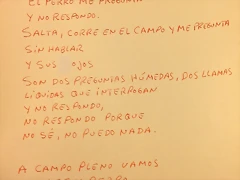 EL PERRO ME PREGUNTA
Y NO RESPONDO.
SALTA, CORRE EN EL CAMPO Y ME PREGUNTA
SIN HABLAR
Y SUS OJOS
SON DOS PREGUNTAS HÚMEDAS, DOS LLAMAS
LÍQUIDAS QUE INTERROGAN
Y NO RESPONDO,
NO RESPONDO PORQUE
NO SÉ, NO PUEDO NADA.
A CAMPO PLENO VAMOS